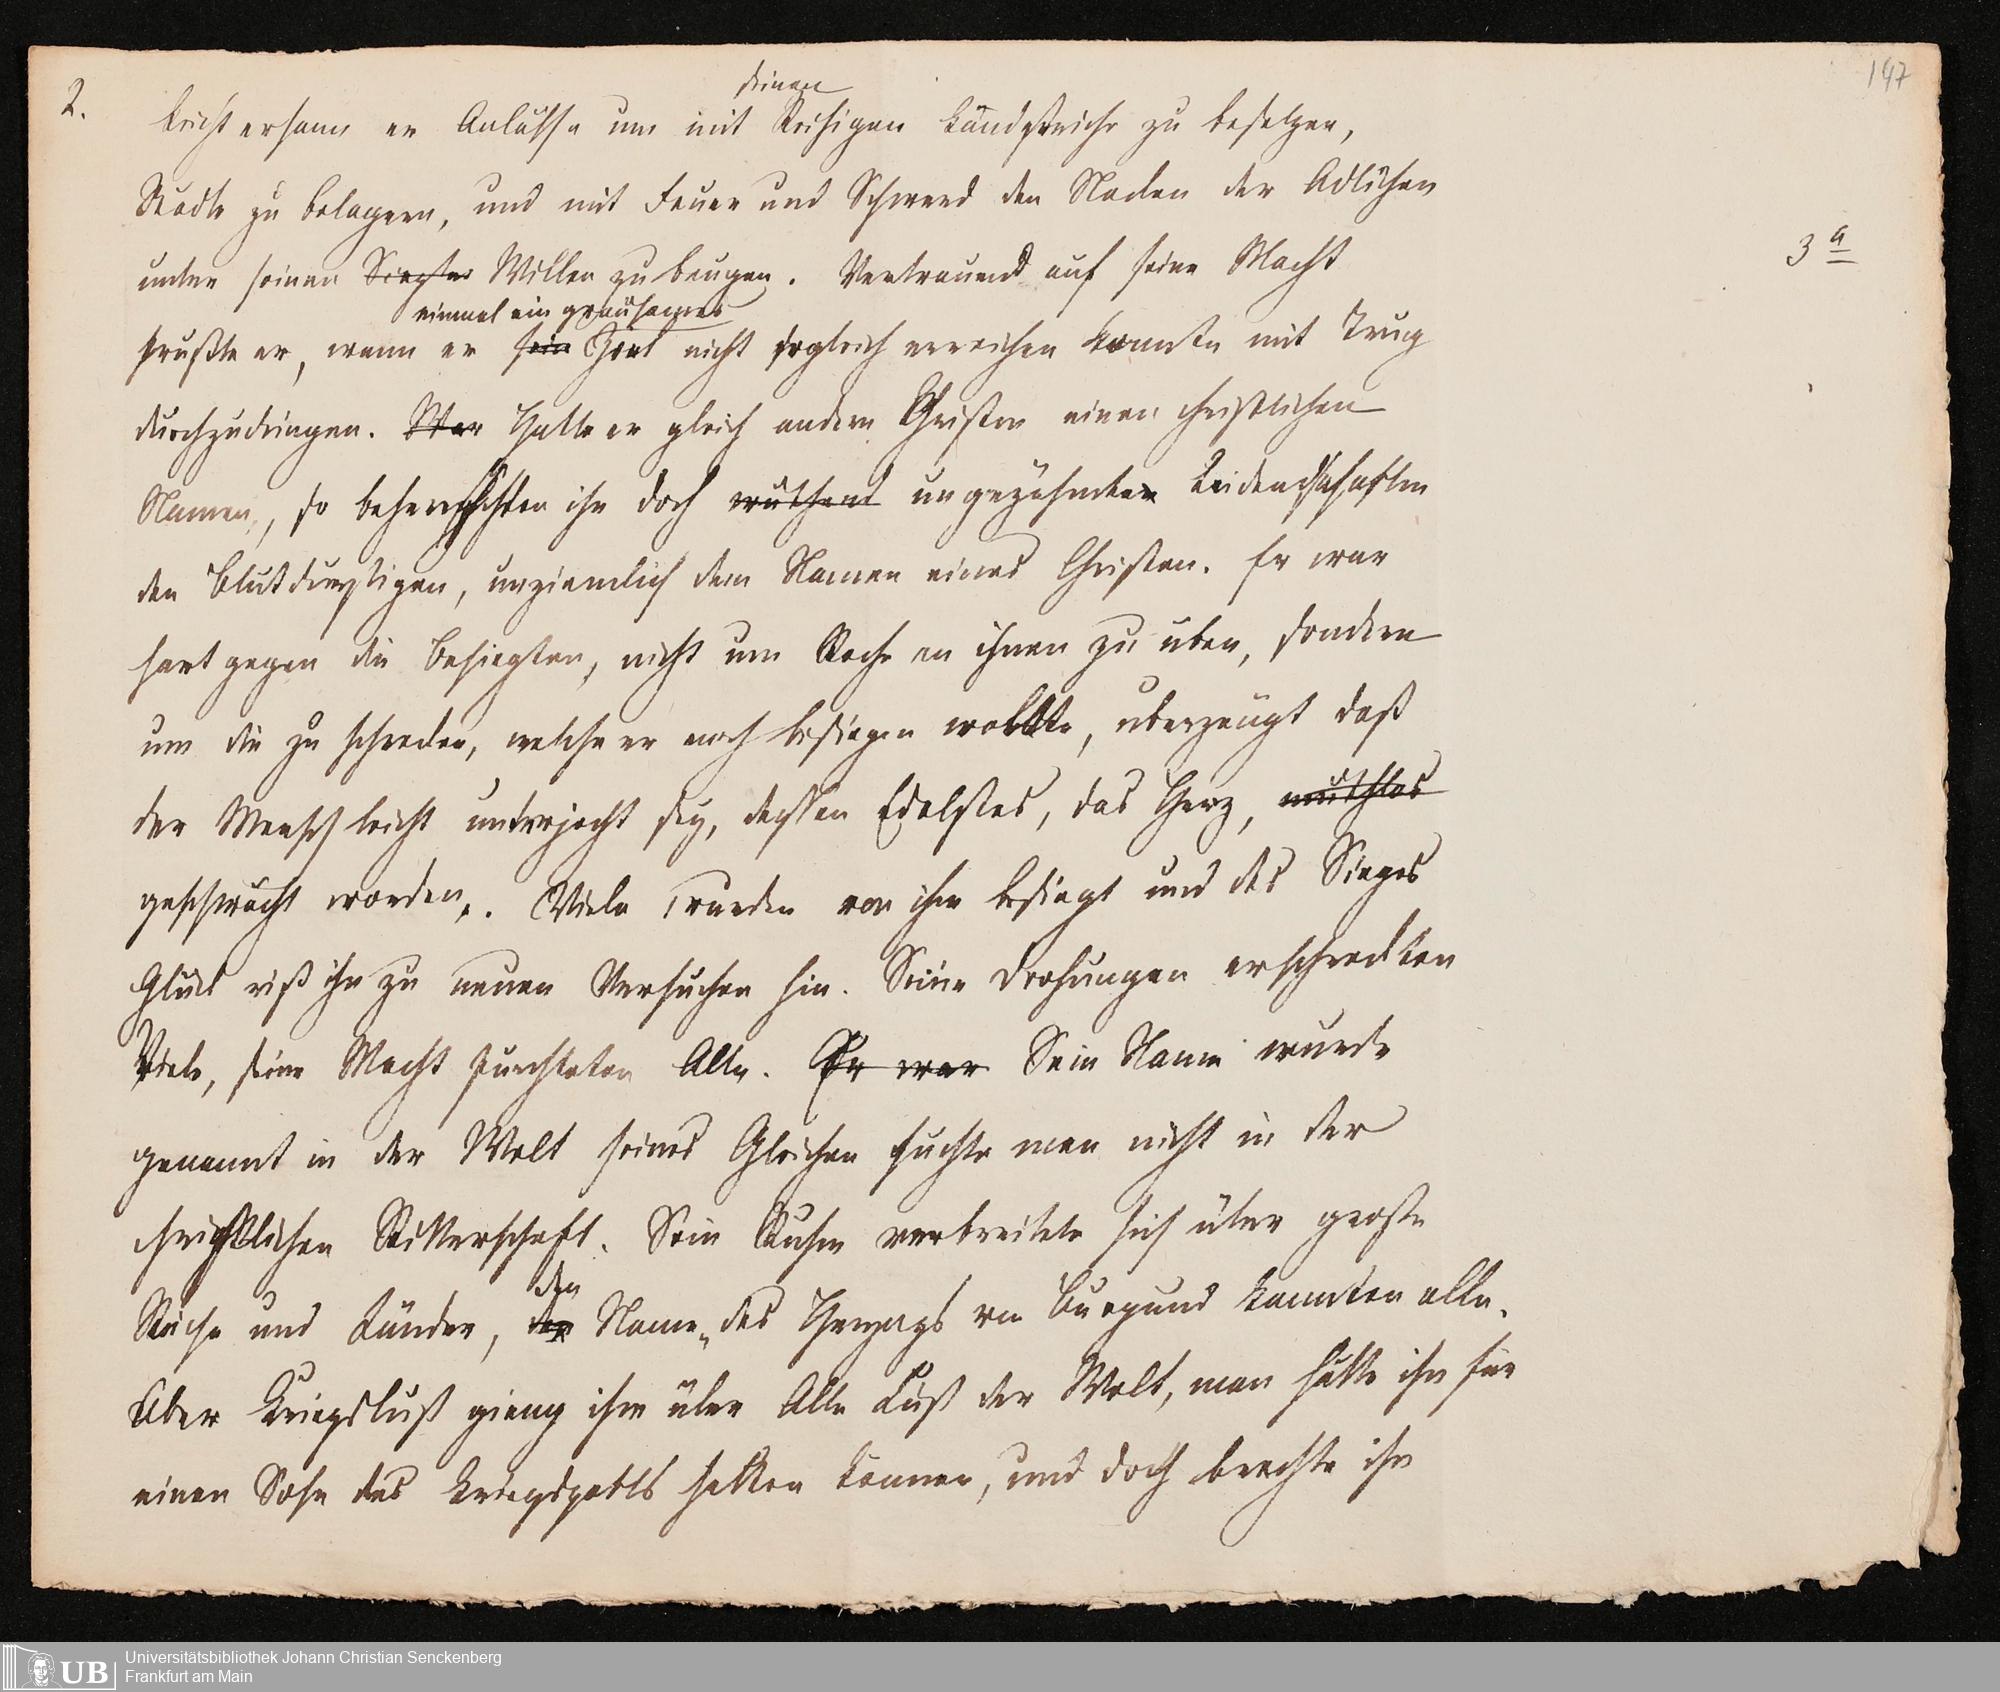 147
2.
seinen
leicht ersann er Anlässe um mit Reisigen Landstriche zu besetzen,
Städte zu belagern, und mit Feuer und Schwerd den Nacken der Adlichen
3a
unter seinen Willen zu beugen. Vertrauend auf seine Macht
einmal ein grausames
suchte er, wenn er sein Ziel nicht sogleich erreichen konnte mit Trug
durchzudringen. War Hatte er gleich andern Christen einen christlichen
Namen, so beherrschten ihn doch wüthend ungezähmte Leidenschaften
den Blutdurstigen, unziemlich dem Namen eines Christen. Er war
hart gegen die Besiegten, nicht um Rache an ihnen zu üben, sondern
um die zu schrecken, welche er noch besiegen wollte, überzeugt daß
der Mensch leicht unterjocht sey, dessen Edelstes, das Herz, muthlos
geschwächt worden. Viele wurden von ihm besiegt und des Sieges
Glück riß ihn zu neuen Versuchen hin. Seine Drohungen erschreckten
Viele, seine Macht furchteten Alle. Er war Sein Name wurde
genannt in der Welt seines Gleichen suchte man nicht in der
christlichen Ritterschaft. Sein Ruhm verbreitete sich über große
den
Reiche und Länder, der Namen des Herzogs von Burgund kannten alle.
Aber Kriegslust gieng ihm über Alle Lust der Welt, man hätte ihn für
einen Sohn des Kriegsgotts halten können, und doch brachte ihn
Universitätsbibliothek Johann Christian Senckenberg
Frankfurt am Main
UB